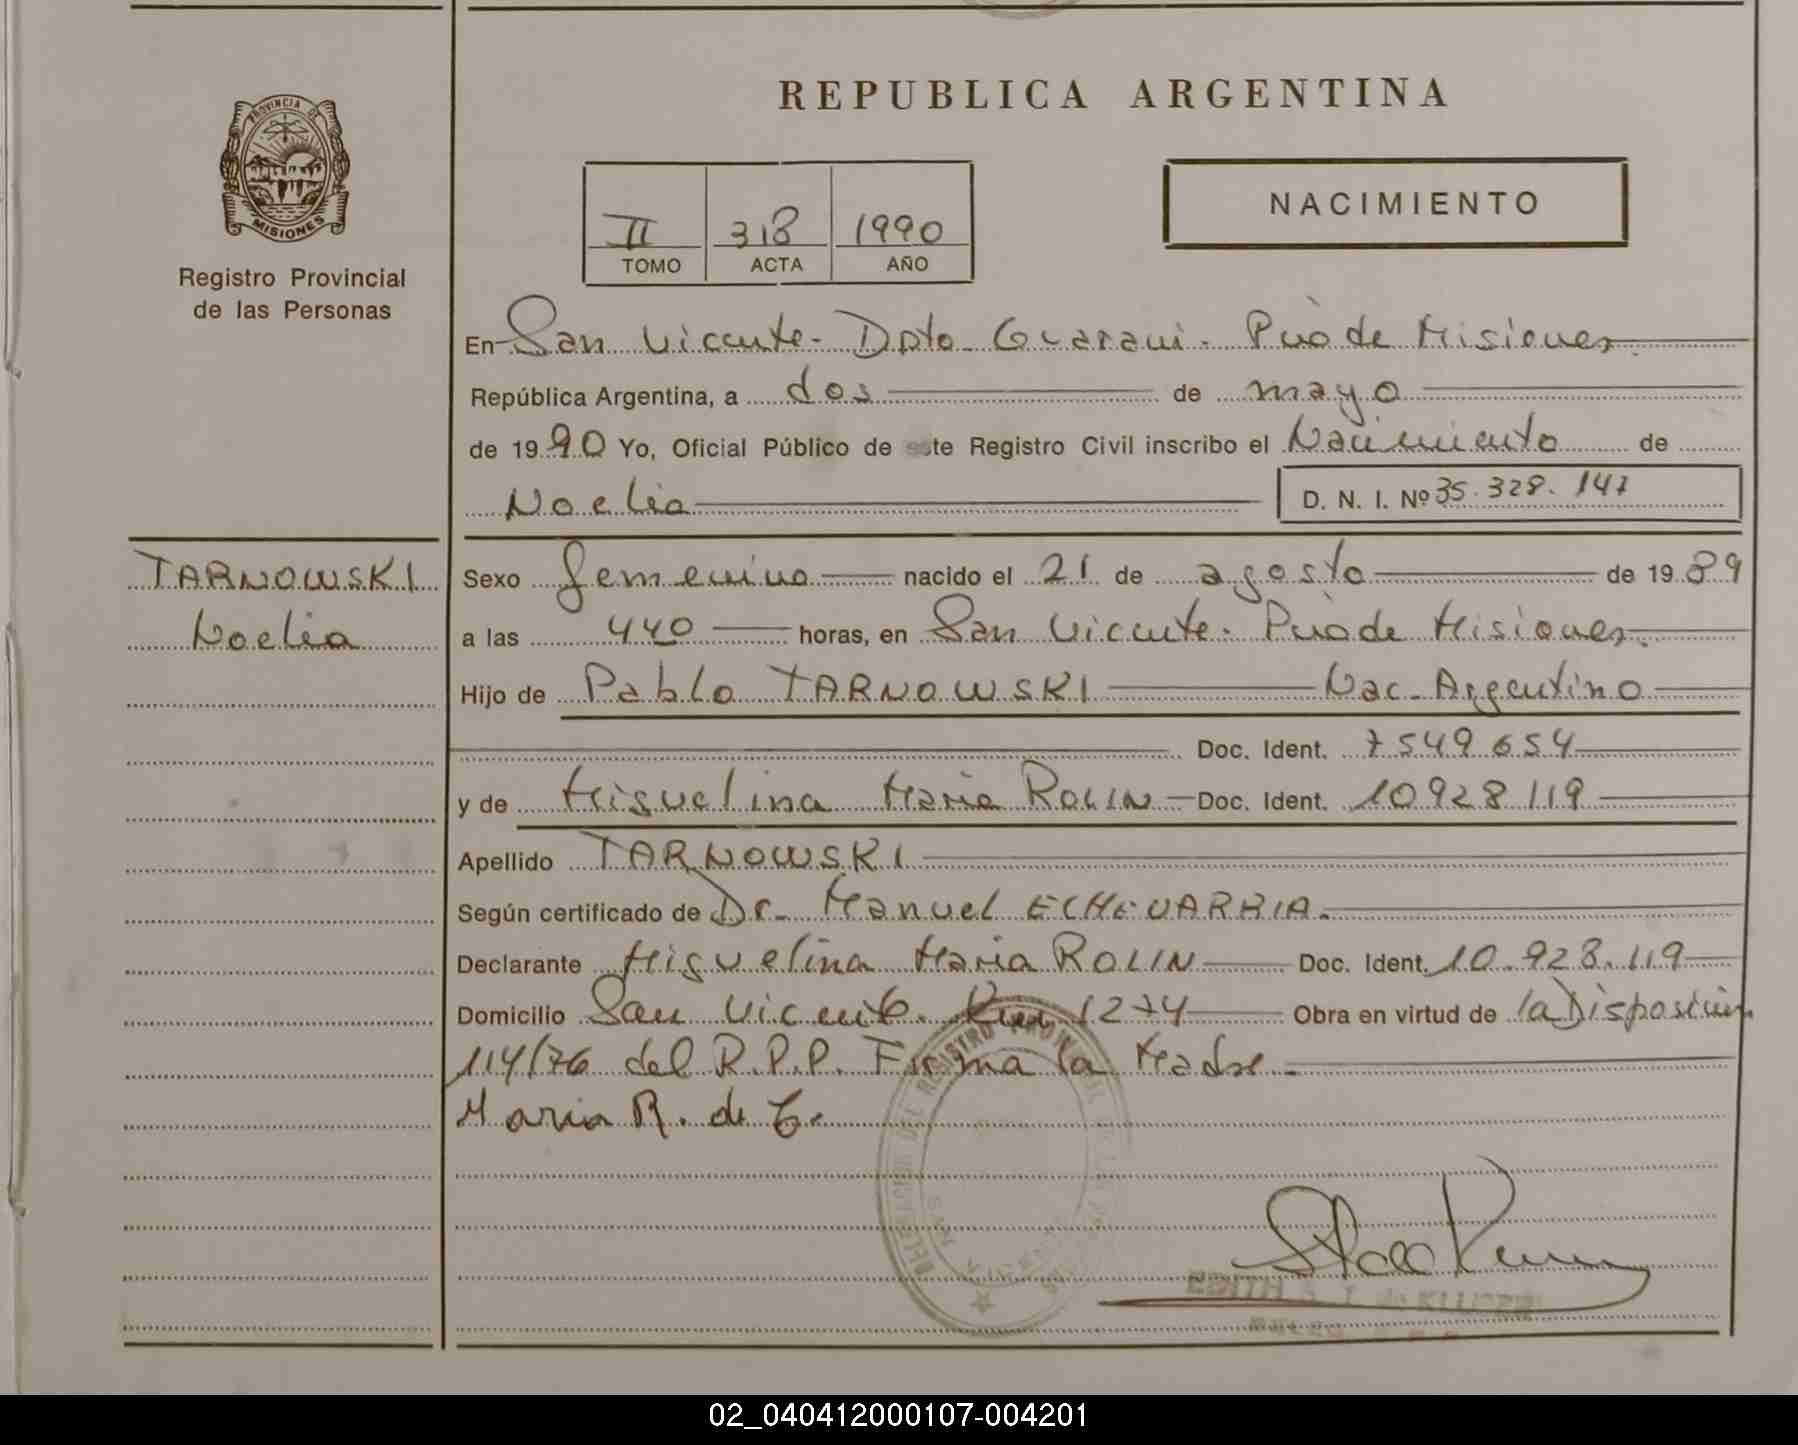 REPUBLICA ARGENTINA
PROVINCIA DE
MISIONES
Registro Provincial
de las Personas
II 318 1990
TOMO ACTA AÑO
NACIMIENTO
En San Vicente - Dpto Guarani - Pvio de Misiones
República Argentina, a dos de mayo
de 1990 Yo, Oficial Público de este Registro Civil inscribo el Nacimiento de
Noelia D. N. I. Nº 35.328.147
TARNOWSKI
Noelia
Sexo femenino nacido el 21 de agosto de 1989
a las 440 horas, en San Vicente. Pvio de Misiones.
Hijo de Pablo TARNOWSKI Nac. Argentino
Doc. Ident. 7549654
y de Miguelina Maria ROLIN Doc. Ident. 10928119
Apellido TARNOWSKI
Según certificado de Dr. Manuel ECHEVARRIA.
Declarante Miguelina Maria ROLIN Doc. Ident. 10.928.119
Domicilio San Vicente. Km 1274 Obra en virtud de la Disposición
114/76 del R.P.P. Firma la Madre.
Maria R. de T.
DELEGACION DEL REGISTRO PROVINCIAL DE LAS
SAN VICENTE
EDITH
02_040412000107-004201